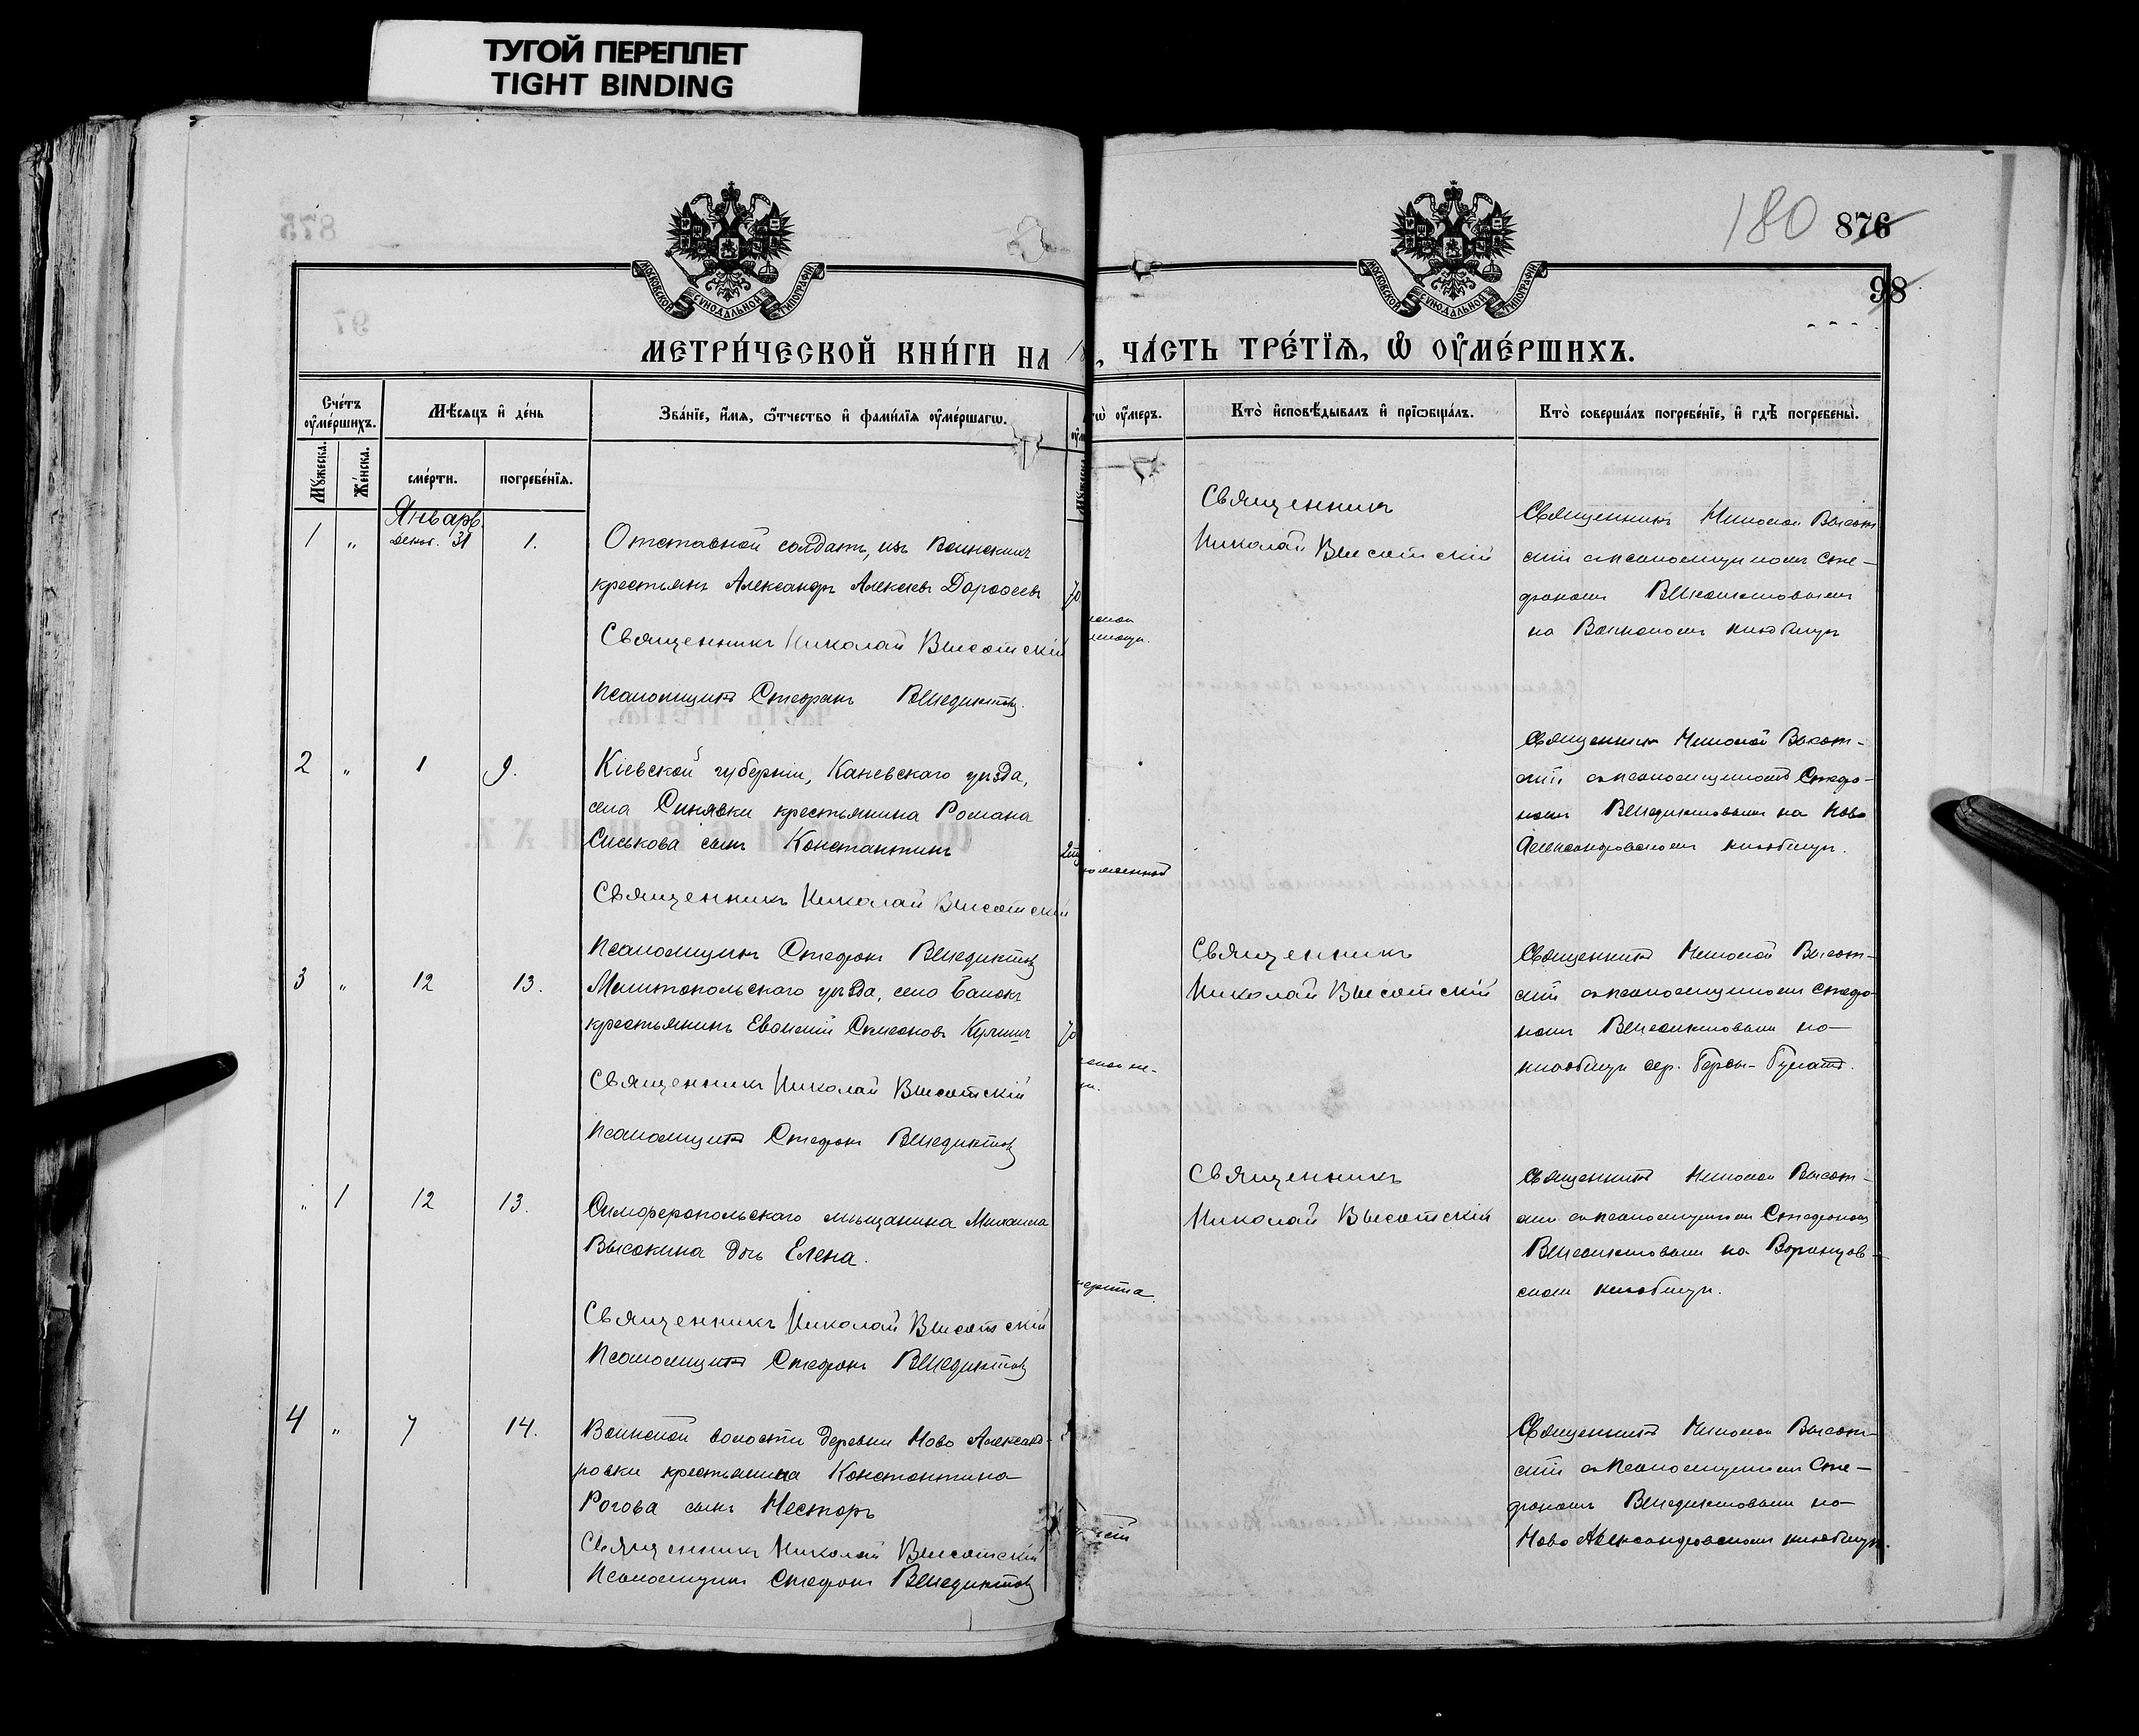 ТУГОЙ ПЕРЕПЛЕТ
TIGHT BINDING
180 876
98
МОСКОВСКОЙ СѴНОДАЛЬНОЙ ТИПОГРАФІИ
МОСКОВСКОЙ СѴНОДАЛЬНОЙ ТИПОГРАФІИ
МЕТРИ́ЧЕСКОЙ КНИ́ГИ НА 18 , ЧА́СТЬ ТРЕ́ТІѦ, Ѡ ОУ҆МЕ́РШИХЪ.
Сче́тъ оу҆ме́ршихъ.
Мѣ́сяцъ и҆ де́нь
Зва́нїе, и҆́мя, ѻ҆́тчество и҆ фами́лїя оу҆ме́ршагѡ.
гѡ̀ оу҆́меръ.
Кто̀ и҆сповѣ́дывалъ и҆ прїѡбща́лъ.
Кто̀ соверша́лъ погребе́нїе, и҆ гдѣ̀ погребены̀.
Мꙋ́жеска.
Же́нска.
сме́рти.
погребе́нїя.
Январь
1 „ Декаб. 31 1.
Отставной солдатъ, изъ Воинскихъ
крестьянъ Александръ Алексѣевъ Дорофеевъ 70
Священникъ Николай Высотскій
Псаломщикъ Стефанъ Венедиктовъ.
Священникъ
Николай Высотскій
Священникъ Николай Высот
скій съ псаломщикомъ Сте-
фаномъ Венедиктовымъ
на Воинскомъ кладбищѣ
2 „ 1 9.
Кіевской губерніи, Каневскаго уѣзда,
села Синявки крестьянина Романа
Сынъ Константинъ
Священникъ Николай Высотскій
Псаломщикъ Стефанъ Венедиктовъ
Священникъ Николай Высот-
скій съ псаломщикомъ Стефа-
номъ Венедиктовымъ на Ново
Александровскомъ кладбищѣ.
3 „ 12 13.
Мелитопольскаго уѣзда, село Балокъ
крестьянинъ Евфимій Симеоновъ 70
Священникъ Николай Высотскій
Псаломщикъ Стефанъ Венедиктовъ
Священникъ
Николай Высотскій
Священникъ Николай Высот-
скій съ псаломщикомъ Стефа-
номъ Венедиктовымъ на
кладбищѣ дер.
„ 1 12 13.
Симферопольскаго мѣщанина Михаила
Высокина дочь Елена.
Священникъ Николай Высотскій
Псаломщикъ Стефанъ Венедиктовъ
Священникъ
Николай Высотскій
Священникъ Николай Высот-
скій съ псаломщикомъ Стефаномъ
Венедиктовымъ на Воронцов-
скомъ кладбищѣ.
4 „ 7 14.
Воинской волости деревни Ново Александ-
ровки крестьянина Константина
Рогова сынъ Несторъ
Священникъ Николай Высотскій
Псаломщикъ Стефанъ Венедиктовъ
Священникъ Николай Высот-
скій съ псаломщикомъ Сте-
фаномъ Венедиктовымъ на
Ново Александровскомъ кладбищѣ.